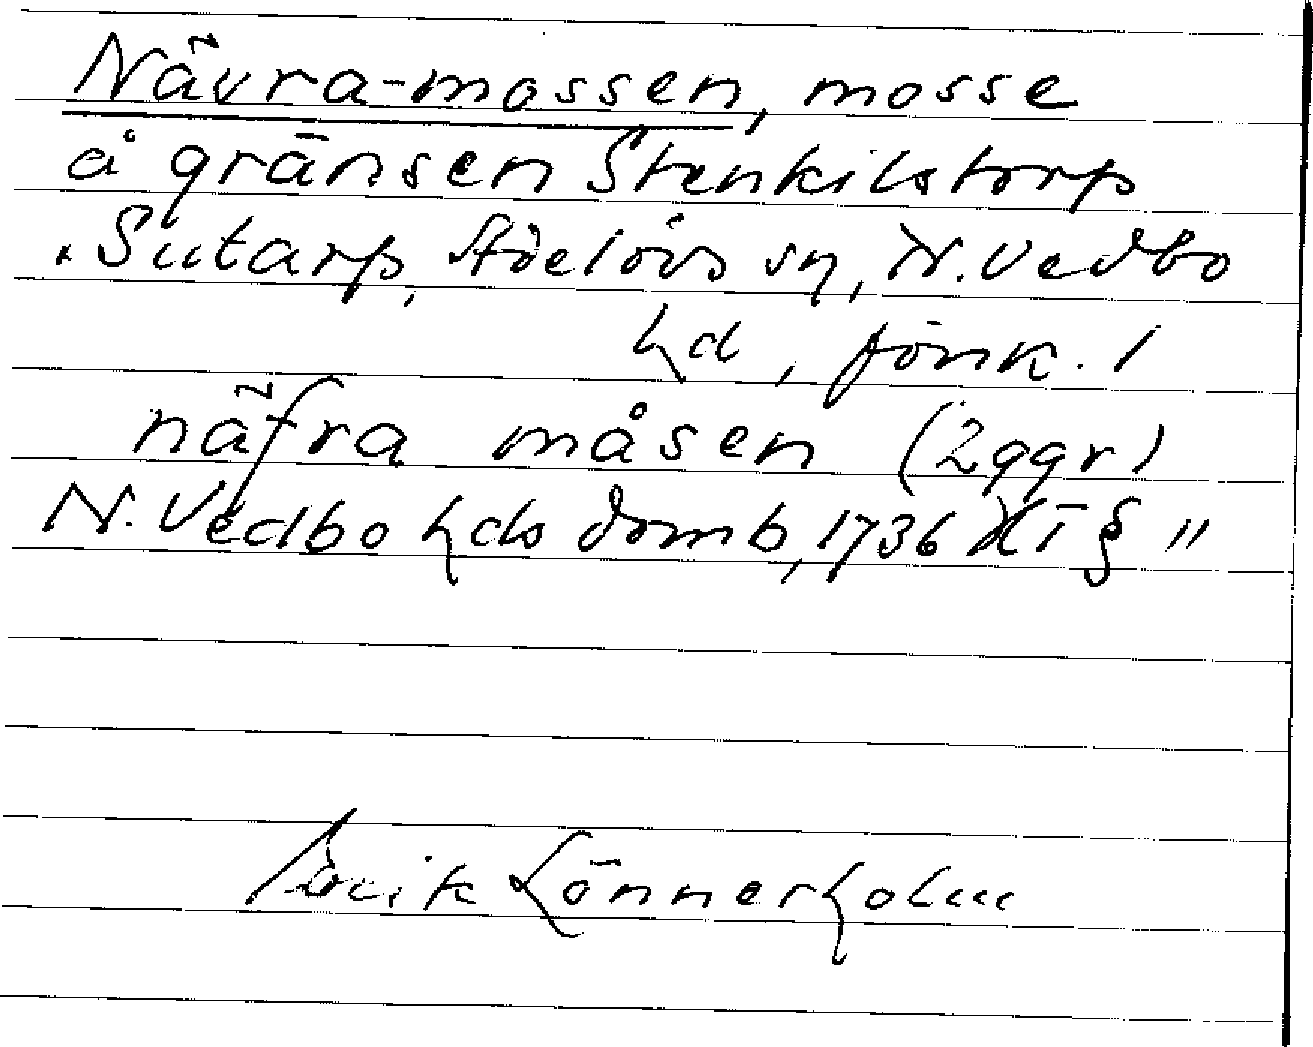 Nävra-mossen, mosse
å gränsen Stenkilstorp
. Sutarp, Adelövs sn, N. Vedbo
hd, Jönk. l
näfra måsen (2ggr)
N. Vedbo hds domb, 1736 HT § 11
Erik Lönnerholm